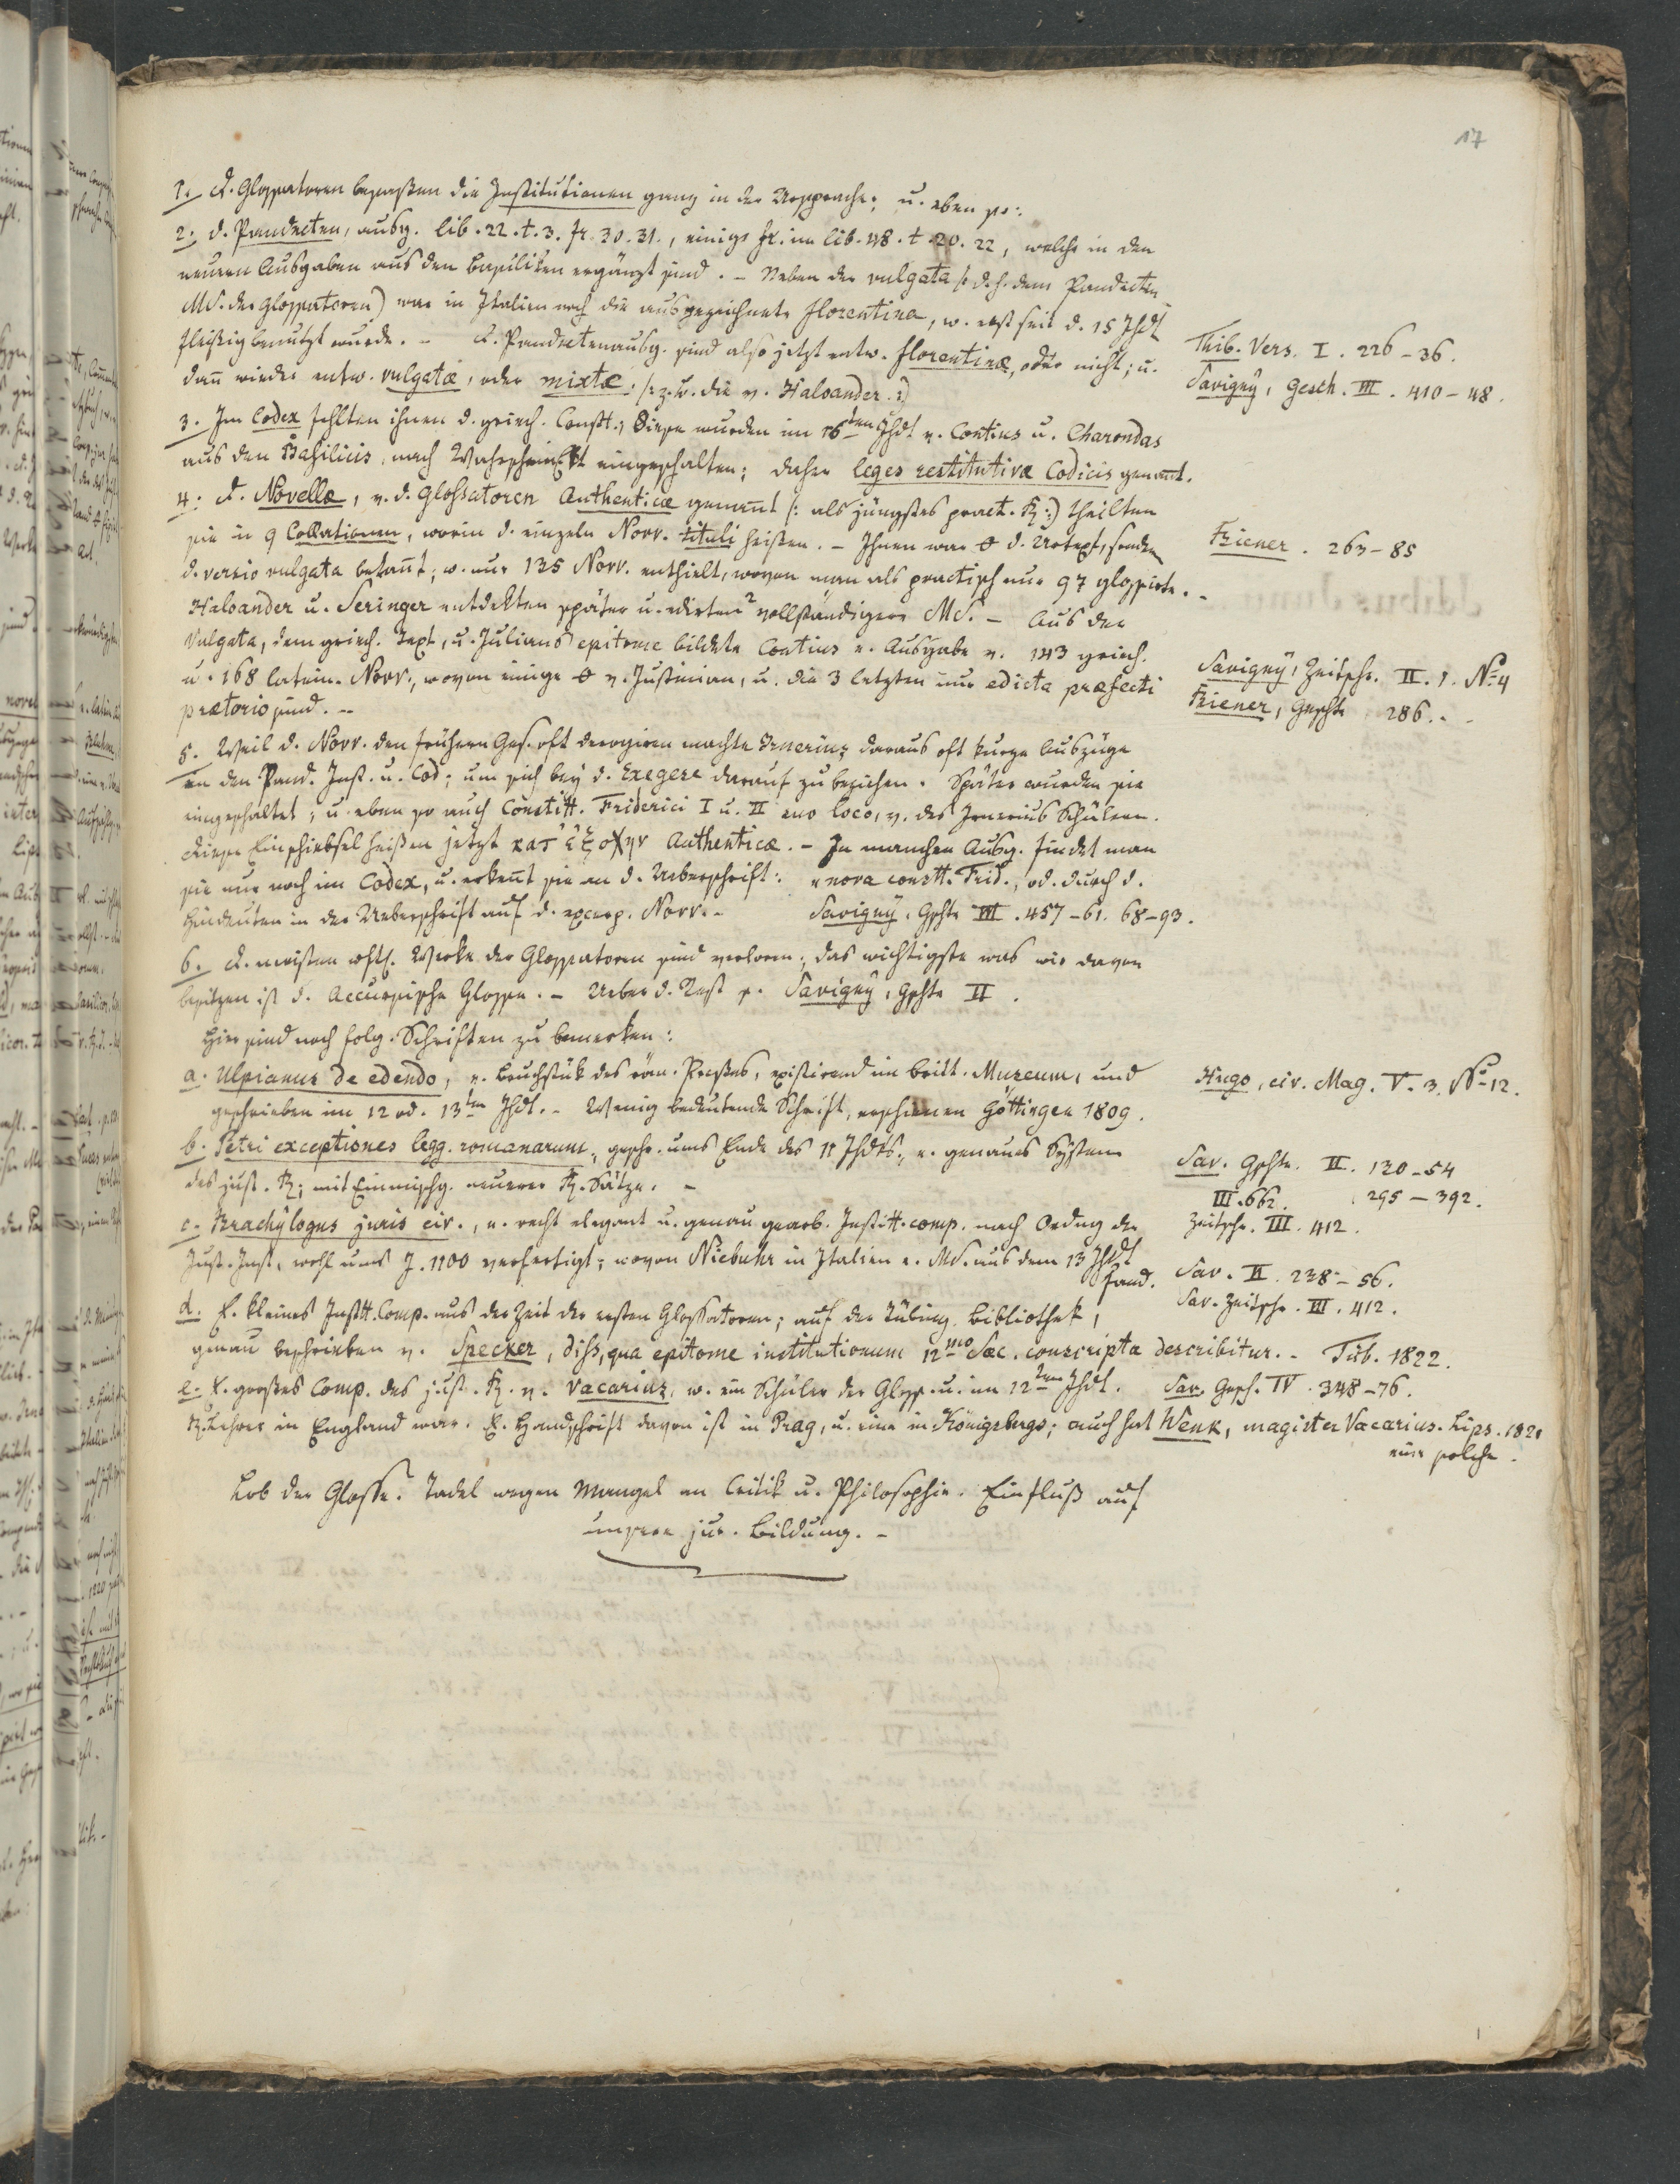 17
1. D. Glossatoren besassen die Institutionen ganz in der Ursprache; u. eben so:
2. d. Pandecten, ausg. lib. 22. t. 3. fr. 30. 31., einige fr. im lib. 48. t. 20. 22, welche in den
neuern Ausgaben aus den Basiliken ergänzt sind. – Neben der vulgata /: d. h. dem Pandecten
MS. der Glossatoren) war in Italien noch die ausgezeichnete florentina, w. erst seit d. 15 Jhdt
fleißig benutzt wurde. – D. Pandectenausg. sind also jetzt entw. florentinæ, oder nicht; u.
Thib. Vers. I. 226–36.
dañ wieder entw. vulgatæ, oder mixtæ. /: z. B. die v. Haloander :/
Savigny, Gesch. III. 410–48.
3. Im Codex fehlten ihnen d. griech. Constt.; diese wurden im 16ten Jhdt v. Contius u. Charondas
aus den Basilicis, nach eingeschalten; daher leges restitutivæ Codicis genañt.
4. D. Novellæ, v. d. Glossatoren Authenticæ genañt /: als jüngstes pract. R. :/ theilten
sie in 9 Collationen, worin d. einzeln Novv. tituli heißen. – Ihnen war d. Urtext, sondern
Biener. 263–85
d. versio vulgata bekañt; w. nur 135 Novv. enthielt, wovon man als practisch nur 97 glossirte. –
Haloander u. Scringer entdekten später u. edirten 2 vollständigere MS. – Aus der
Vulgata, dem griech. Text, u. Julians epitome bildete Contius e. Ausgabe v. 143 griech.
u. 168 latein. Novv., wovon einige v. Justinian, u. die 3 letzten nur edicta præfecti
Savigny, Zeitschr. II. 1. No 4
prætorio sind. –
Biener, Gschte 286. –
5. Weil d. Novv. den frühern Ges. oft derogiren machte Irnerius daraus oft kurze Auszüge
an den Pand. Inst. u. Cod; um sich bey d. Exegese darauf zu beziehen. Später wurden sie
eingeschaltet, u. eben so auch Constitt. Friderici I u. II suo loco, v. des Irnerius Schülern.
Diese Einschiebsel heißen jetzt κατ' ἐξοχην Authenticæ. – In manchen Ausg. findet man
sie nur noch im Codex, u. erkeñt sie an d. Ueberschrift: „nova constt. Frid., od. durch d.
Hindeuten in der Ueberschrift auf d. excerp. Novv. – Savigny, Gschte III. 457–61. 68–93.
6. D. meisten Werke der Glossatoren sind verloren; das wichtigste was wir davon
besitzen ist d. Accursische Glosse. – Ueber d. Rest s. Savigny, Gschte II.
Hier sind noch folg. Schriften zu bemerken:
a. Ulpianus de edendo, e. Bruchstük des röm. Prozßes, existirend im britt. Muzeum, und
Hugo, civ. Mag. V. 3. No 12.
geschrieben im 12 od. 13ten Jhdt. – Wenig bedeutende Schrift, erschienen Göttingen 1809.
b. Petri exceptiones legg. romanarum, geschr. ums Ende des 11 Jhdts.; e. genaues System
Sav. Gschte. II. 130–54
des just. R; mit Einmischg. neuerer R. Sätze. –
III. 662. 295–392.
c. Brachylogus juris civ., e. recht elegant u. genau gearb. Institt. comp. nach Ordng der
Zeitschr. III. 412.
Just. Inst., wohl ums J. 1100 verfertigt; wovon Niebuhr in Italien e. MS. aus dem 13 Jhdt
fand.
Sav. II. 238–56.
d. E. kleines Instt. Comp. aus der Zeit der ersten Glossatoren; auf der Tübing. Bibliothek,
Sav. Zeitschr. III. 412.
genau beschrieben v. Specker, diss, qua epitome institutionum 12mo Sæc. conscripta describitur. – Tüb. 1822.
e. E. großes Comp. des just. R. v. Vacarius, w. ein Schüler der Gloss. u. im 12ten Jhdt. Sav. Gesch. IV. 348–76.
R. Lehrer in England war. E. Handschrift davon ist in Prag, u. eine in Königsbergs; auch hat Wenk, magister Vacarius. Lips. 1820
eine solche.
Lob der Glosse. Tadel wegen Mangel an Critik u. Philosophie. Einfluß auf
unsere jur. Bildung. –